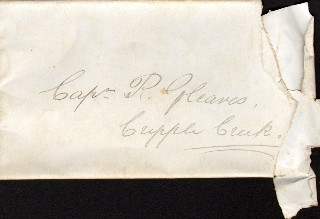 Capn R. Gleaves,
Cripple Creek.